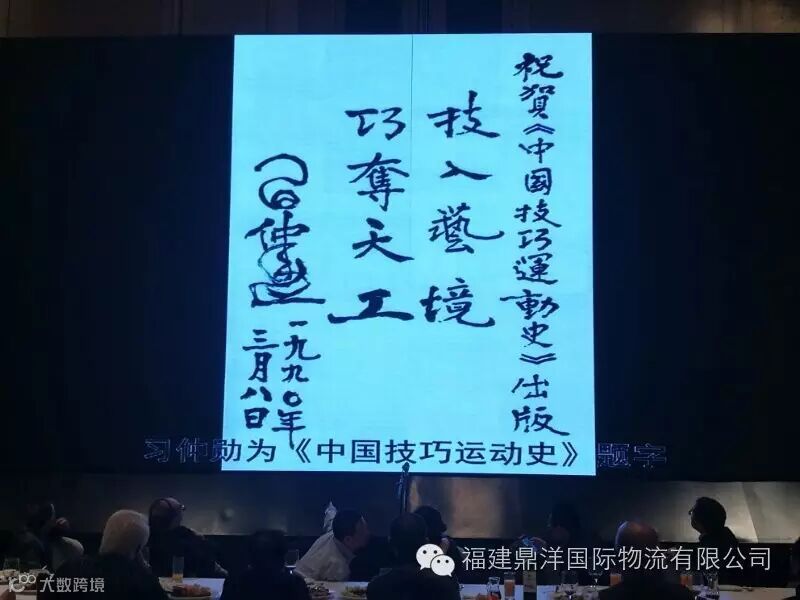 祝賀《中国技巧運動史》出版
技入藝境
巧奪天工
习仲勋
一九九〇年
三月八日
习仲勋为《中国技巧运动史》题字
福建鼎洋国际物流有限公司
大数跨境